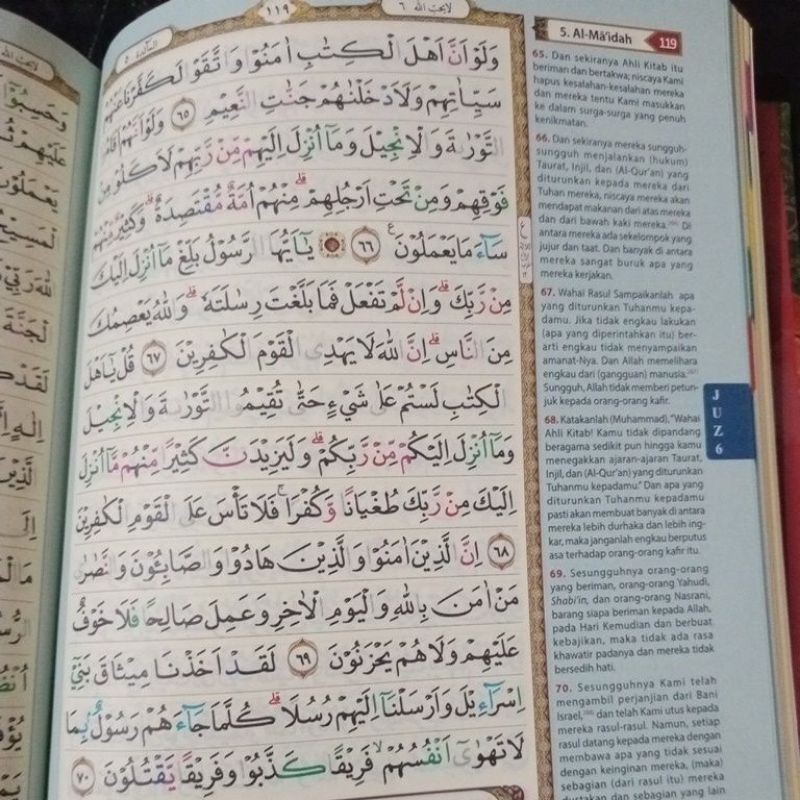 لايحب الله ٦
١١٩
المآئدة ٥
وَلَوْ اَنَّ اَهْلَ الْكِتٰبِ اٰمَنُوْا وَاتَّقَوْا لَكَفَّرْنَا عَنْهُمْ
سَيِّاٰتِهِمْ وَلَاَدْخَلْنٰهُمْ جَنّٰتِ النَّعِيْمِ ٦٥ وَلَوْ اَنَّهُمْ اَقَامُوا
التَّوْرٰىةَ وَالْاِنْجِيْلَ وَمَآ اُنْزِلَ اِلَيْهِمْ مِّنْ رَّبِّهِمْ لَاَكَلُوْا مِنْ
فَوْقِهِمْ وَمِنْ تَحْتِ اَرْجُلِهِمْۗ مِنْهُمْ اُمَّةٌ مُّقْتَصِدَةٌ ۗ وَكَثِيْرٌ مِّنْهُمْ
سَاۤءَ مَا يَعْمَلُوْنَ ࣖ ٦٦ يٰٓاَيُّهَا الرَّسُوْلُ بَلِّغْ مَآ اُنْزِلَ اِلَيْكَ
مِنْ رَّبِّكَ ۗ وَاِنْ لَّمْ تَفْعَلْ فَمَا بَلَّغْتَ رِسٰلَتَهٗ ۗ وَاللّٰهُ يَعْصِمُكَ
مِنَ النَّاسِۗ اِنَّ اللّٰهَ لَا يَهْدِى الْقَوْمَ الْكٰفِرِيْنَ ٦٧ قُلْ يٰٓاَهْلَ
الْكِتٰبِ لَسْتُمْ عَلٰى شَيْءٍ حَتّٰى تُقِيْمُوا التَّوْرٰىةَ وَالْاِنْجِيْلَ
وَمَآ اُنْزِلَ اِلَيْكُمْ مِّنْ رَّبِّكُمْ ۗ وَلَيَزِيْدَنَّ كَثِيْرًا مِّنْهُمْ مَّآ اُنْزِلَ
اِلَيْكَ مِنْ رَّبِّكَ طُغْيَانًا وَّكُفْرًاۚ فَلَا تَأْسَ عَلَى الْقَوْمِ الْكٰفِرِيْنَ
٦٨ اِنَّ الَّذِيْنَ اٰمَنُوْا وَالَّذِيْنَ هَادُوْا وَالصَّابِـُٔوْنَ وَالنَّصٰرٰى
مَنْ اٰمَنَ بِاللّٰهِ وَالْيَوْمِ الْاٰخِرِ وَعَمِلَ صَالِحًا فَلَا خَوْفٌ
عَلَيْهِمْ وَلَا هُمْ يَحْزَنُوْنَ ٦٩ لَقَدْ اَخَذْنَا مِيْثَاقَ بَنِيْٓ
اِسْرَاۤءِيْلَ وَاَرْسَلْنَآ اِلَيْهِمْ رُسُلًا ۗ كُلَّمَا جَاۤءَهُمْ رَسُوْلٌۢ بِمَا
لَا تَهْوٰٓى اَنْفُسُهُمْۙ فَرِيْقًا كَذَّبُوْا وَفَرِيْقًا يَّقْتُلُوْنَ ٧٠
5. Al-Mā'idah 119
65. Dan sekiranya Ahli Kitab itu
beriman dan bertakwa; niscaya Kami
hapus kesalahan-kesalahan mereka
dan mereka tentu Kami masukkan
ke dalam surga-surga yang penuh
kenikmatan.
66. Dan sekiranya mereka sungguh-
sungguh menjalankan (hukum)
Taurat, Injil, dan (Al-Qur'an) yang
diturunkan kepada mereka dari
Tuhan mereka, niscaya mereka akan
mendapat makanan dari atas mereka
dan dari bawah kaki mereka. Di
antara mereka ada sekelompok yang
jujur dan taat. Dan banyak di antara
mereka sangat buruk apa yang
mereka kerjakan.
67. Wahai Rasul Sampaikanlah apa
yang diturunkan Tuhanmu kepa-
damu. Jika tidak engkau lakukan
(apa yang diperintahkan itu) ber-
arti engkau tidak menyampaikan
amanat-Nya. Dan Allah memelihara
engkau dari (gangguan) manusia.
Sungguh, Allah tidak memberi petun-
juk kepada orang-orang kafir.
68. Katakanlah (Muhammad), "Wahai
Ahli Kitab! Kamu tidak dipandang
beragama sedikit pun hingga kamu
menegakkan ajaran-ajaran Taurat,
Injil, dan (Al-Qur'an) yang diturunkan
Tuhanmu kepadamu." Dan apa yang
diturunkan Tuhanmu kepadamu
pasti akan membuat banyak di antara
mereka lebih durhaka dan lebih ing-
kar, maka janganlah engkau berputus
asa terhadap orang-orang kafir itu.
69. Sesungguhnya orang-orang
yang beriman, orang-orang Yahudi,
Shabi'in, dan orang-orang Nasrani,
barang siapa beriman kepada Allah,
pada Hari Kemudian dan berbuat
kebajikan, maka tidak ada rasa
khawatir padanya dan mereka tidak
bersedih hati.
70. Sesungguhnya Kami telah
mengambil perjanjian dari Bani
Israel, dan telah Kami utus kepada
mereka rasul-rasul. Namun, setiap
rasul datang kepada mereka dengan
membawa apa yang tidak sesuai
dengan keinginan mereka, (maka)
sebagian (dari rasul itu) mereka
dustakan dan sebagian yang lain
JUZ 6